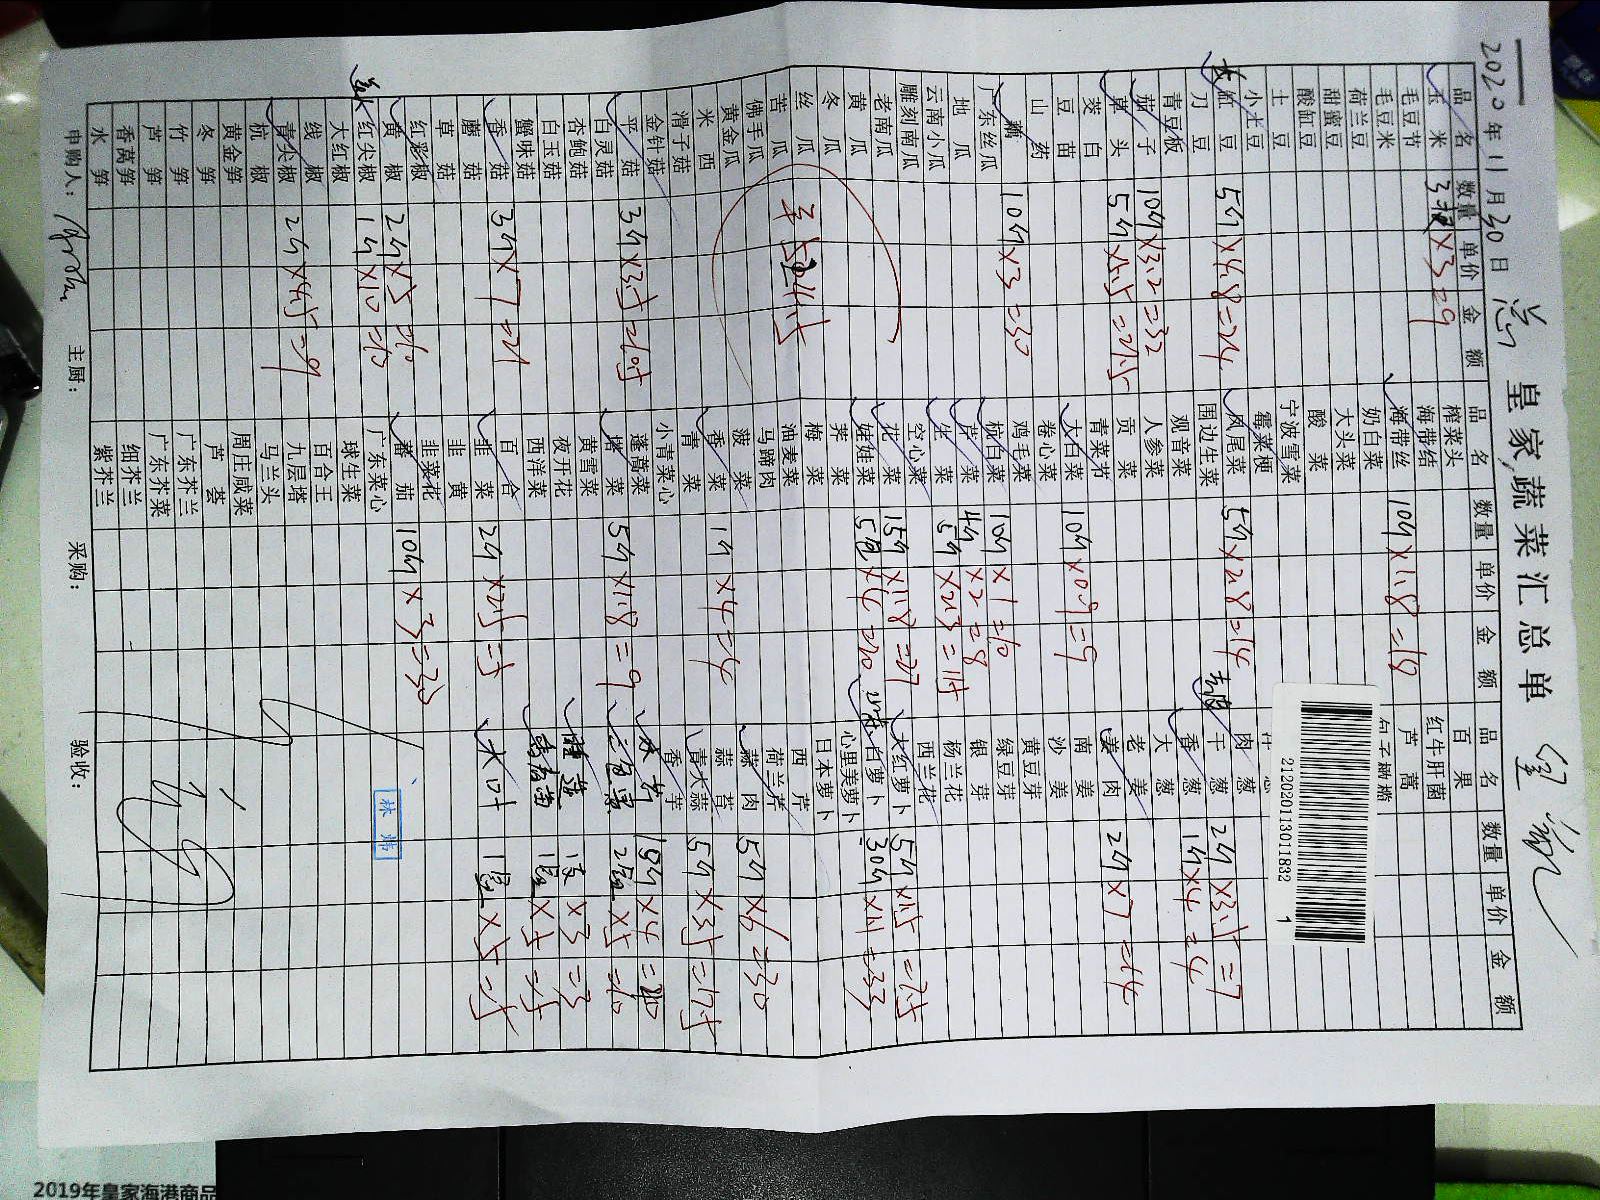 皇家蔬菜汇总单
2020年11月30日
品名 数量 单价 金额
玉米 3 ×3=9
毛豆节
毛豆米
荷兰豆
甜蜜豆
酸缸豆
土豆
小水豆
长缸豆 5斤×4.8=24
刀豆
青豆板
茄子 10斤×3.2=32
草头 5斤
茭白
豆苗
山药
藕 10斤×3=30
广东丝瓜
地瓜
云南小瓜
雕刻南瓜
老南瓜
黄瓜
冬瓜
丝瓜
苦瓜
佛手瓜
黄金瓜
米西
滑子菇
金针菇
平菇 3斤×3.5
白灵菇
杏鲍菇
白玉菇
蟹味菇
香菇 3斤×7=21
蘑菇
草菇
红彩椒
黄椒 2斤×5=10
红尖椒 1斤×10=10
大红椒
线椒
青尖椒 2斤×4.5=9
杭椒
黄金笋
冬笋
竹笋
芦笋
香莴笋
水笋
品名 数量 单价 金额
榨菜头
海带结
海带丝 10斤×1.8=18
奶白菜
大头菜
酸菜
宁波雪菜
霉菜梗
凤尾菜 5斤×2.8=14
围边生菜
观音菜
人参菜
贡菜
青菜节
大白菜 10斤×0.9=9
卷心菜
鸡毛菜
杭白菜 10斤×1=10
芹菜 4斤×2=8
生菜 5斤
空心菜
花菜 15斤×1.8=27
娃娃菜 5包×4=20
荠菜
梅菜
油麦菜
马蹄肉
菠菜
香菜 1斤×4=4
青菜
小青菜心
蓬蒿菜
塔菜 5斤×1.8=9
黄雪菜
夜开花
西洋菜
百合
韭菜 2斤×2.5=5
韭黄
韭菜花
蕃茄 10斤×3=30
广东菜心
球生菜
百合王
九层塔
马兰头
周庄咸菜
芦荟
广东芥兰
广东芥菜
细芥兰
紫芥兰
品名 数量 单价 金额
百果
红牛肝菌
芦蒿
2120201130118321
去皮
肉葱
干葱 2斤×3.5=7
香葱 1斤×4=4
大葱
老姜
姜肉 2斤×7=14
南姜
沙姜
黄豆芽
绿豆芽
银芽
杨兰花
西兰花
大红萝卜 5斤×1.5=7.5
白萝卜 30斤×1.1=33
心里美萝卜
日本萝卜
西芹
荷兰芹
蒜肉 5斤×6=30
蒜苔
青大蒜 5斤×3.5=17.5
香芋
2包×5=10
×3=3
1包×5=5
大叶 1包×5=5
林炜
申购人：
主厨：
采购：
验收：
2019年皇家海港商品